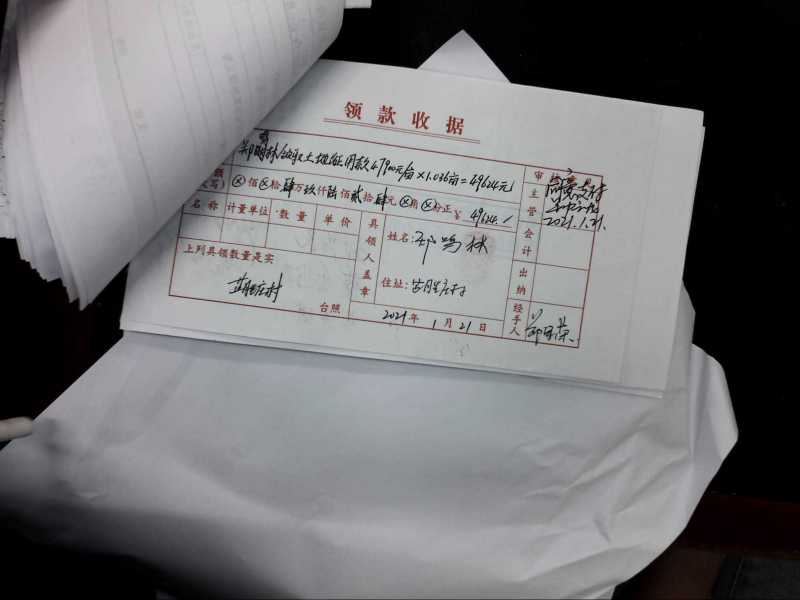 领款收据
林领取土地征用款47900元/亩×1.036亩=49624元
额
(大写) ⊗佰⊗拾肆万玖仟陆佰贰拾肆元⊗角⊗分正¥ 49624/
名称 计量单位 数量 单价
具领人盖章
姓名: 邓鸣林
住址:
上列具领数量是实
台照
2021年1月21日
审
主管
2021.1.21.
会计
出纳
经手人